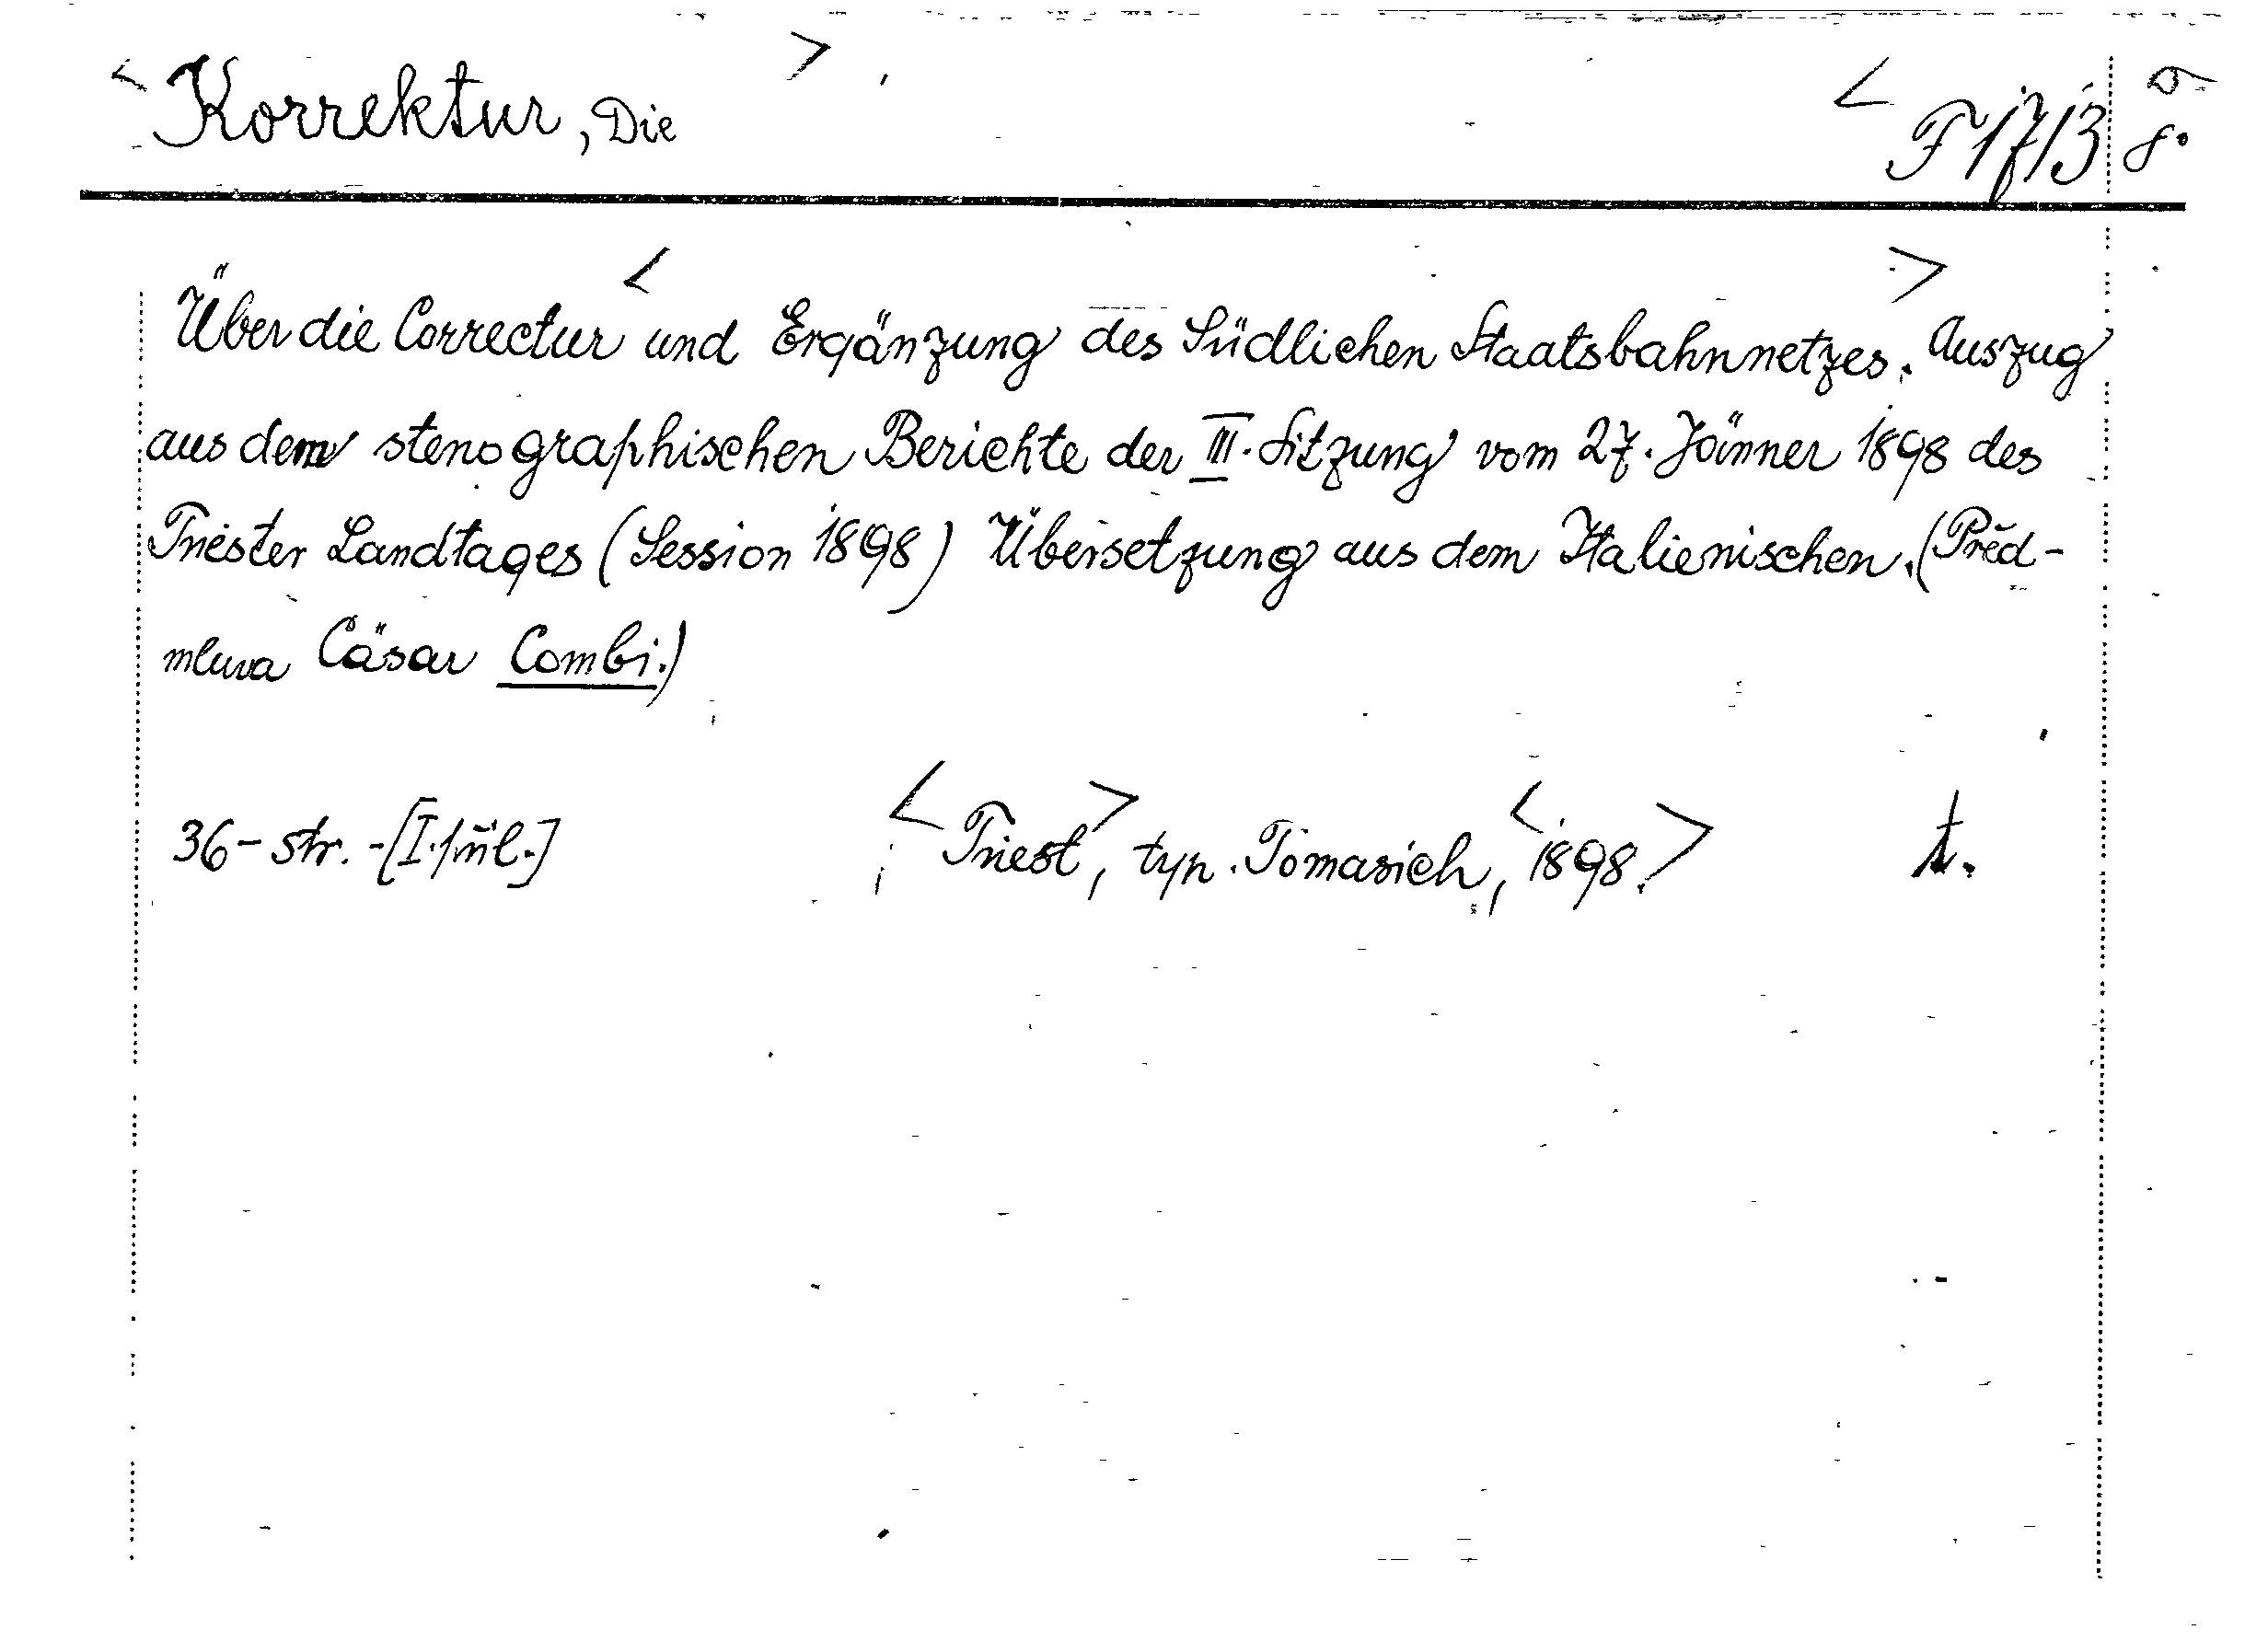 < Korrektur, Die > < F 17/3 8°
Über die Correctur < und Ergänzung des Südlichen Staatsbahnnetzes. > Auszug
aus dem stenographischen Berichte der III. Sitzung vom 27. Jänner 1898 des
Triester Landtages (Session 1898) Übersetzung aus dem Italienischen. (Před-
mluva Cäsar Combi.)
36 - str. - [I. příl.] < Triest >, typ. Tomasich, < 1898. > t.